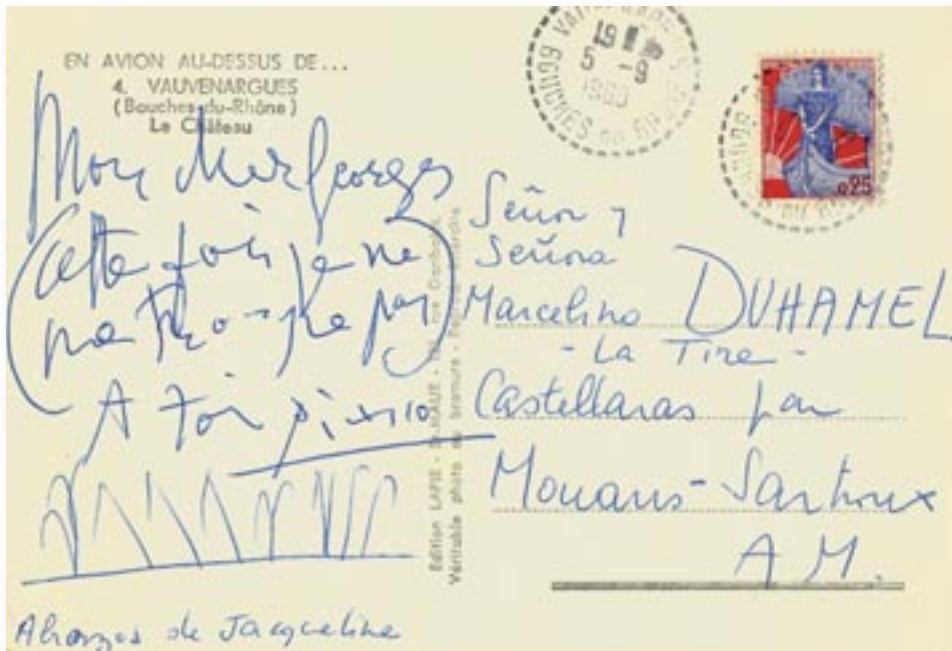 EN AVION AU-DESSUS DE...
4. VAUVENARGUES
(Bouches-du-Rhône)
Le Château
Mon
(Cette fois je ne
me pas)
A toi Picasso
Abrazos de Jacqueline
Edition LAPIE - St-MAUR - rue
Véritable photo au bromure - Reproduction interdite
19
5 -9
1960
BOUCHES DU RHONE
0,25
Señor y
Señora
Marcelino DUHAMEL
- La Tire -
Castellaras par
Mouans-Sartoux
A.M.